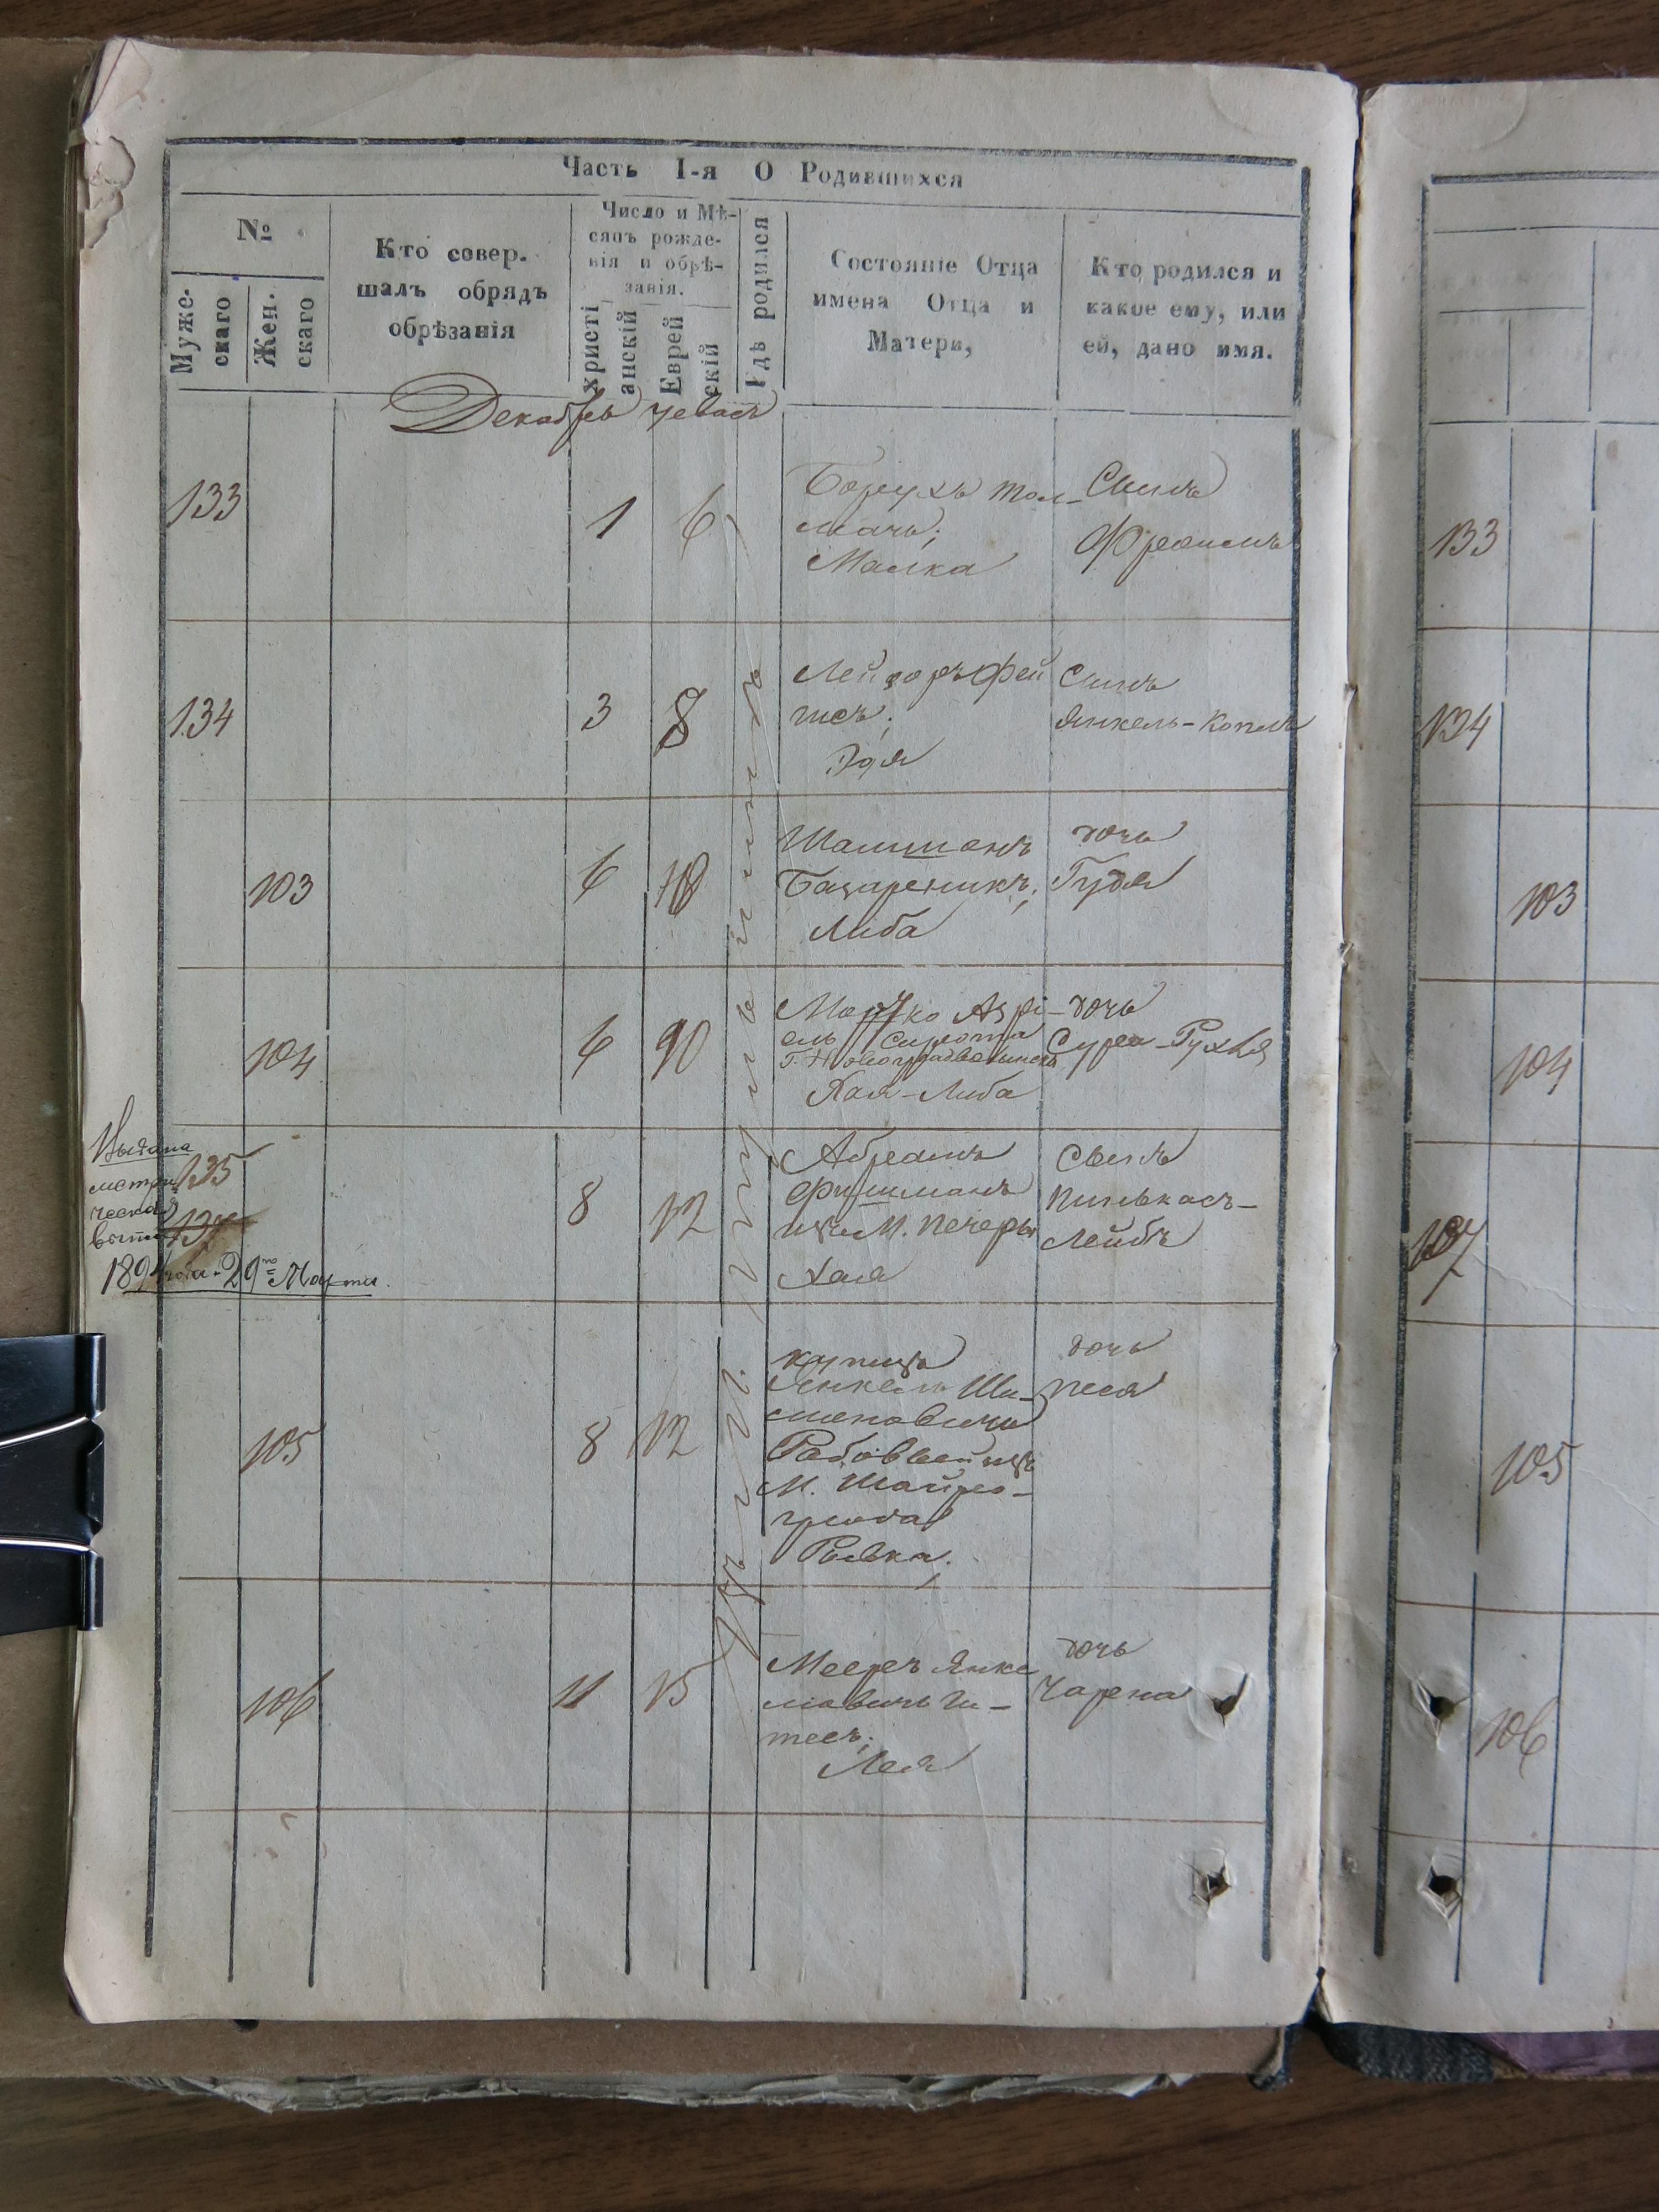 Часть I-я О Родившихся
№
Муже-
скаго
Жен.
скаго
Кто совер-
шалъ обрядъ
обрѣзанія
Число и Мѣ-
сяцъ рожде-
нія и обрѣ-
занія.
христі
анскій
Еврей
скій
Гдѣ родился
Состояніе Отца
имена Отца и
Матери,
Кто родился и
какое ему, или
ей, дано имя.
Декабрь тевасъ
133
1 6
Борухъ Тол-
мачъ;
Малка
Сынъ
Фроимъ
134
3 8
Лейзоръ Фей
Эдя
Сынъ
Янкель-Копель
103
6 10
Шлиманъ
Базареникъ;
Либа
дочь
Гудя
104
6 10
Мошко Азрі-
ель Сирота
Г. Новоградволынска
Хая-Либа
дочь
Сура-Рухля
Выдана
метри
ческая
135
8 12
Абрамъ
Фишманъ
изъ М. Печеры
Хая
Сынъ
Пинькасъ-
Лейбъ
1894 года 29го Марта.
105
8 12
купецъ
Янкель Ши-
меновичъ
М. Шайро-
града
Ривка;
дочь
Песя
106
11 15
Мееръ Янке
левичъ Ги-
тесъ;
Лея
дочь
Чарна
133
134
103
104
107
105
106